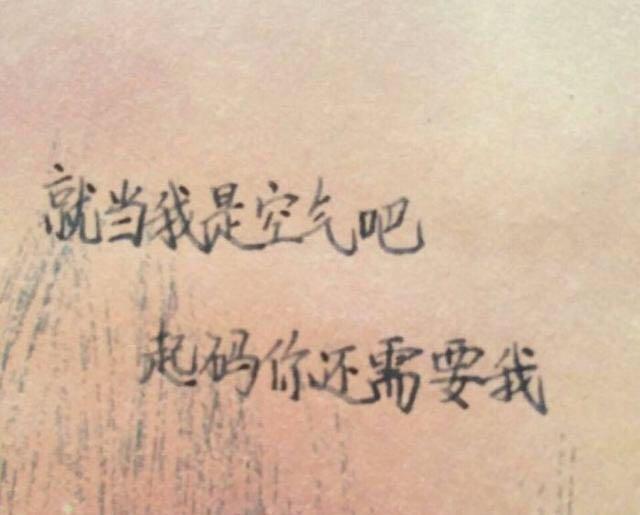 就当我是空气吧
起码你还需要我